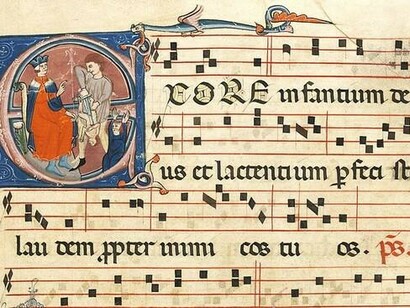 EX ORE infantium de
us et lactentium pfeci st
lau dem ppter inimi cos tu os. ps.